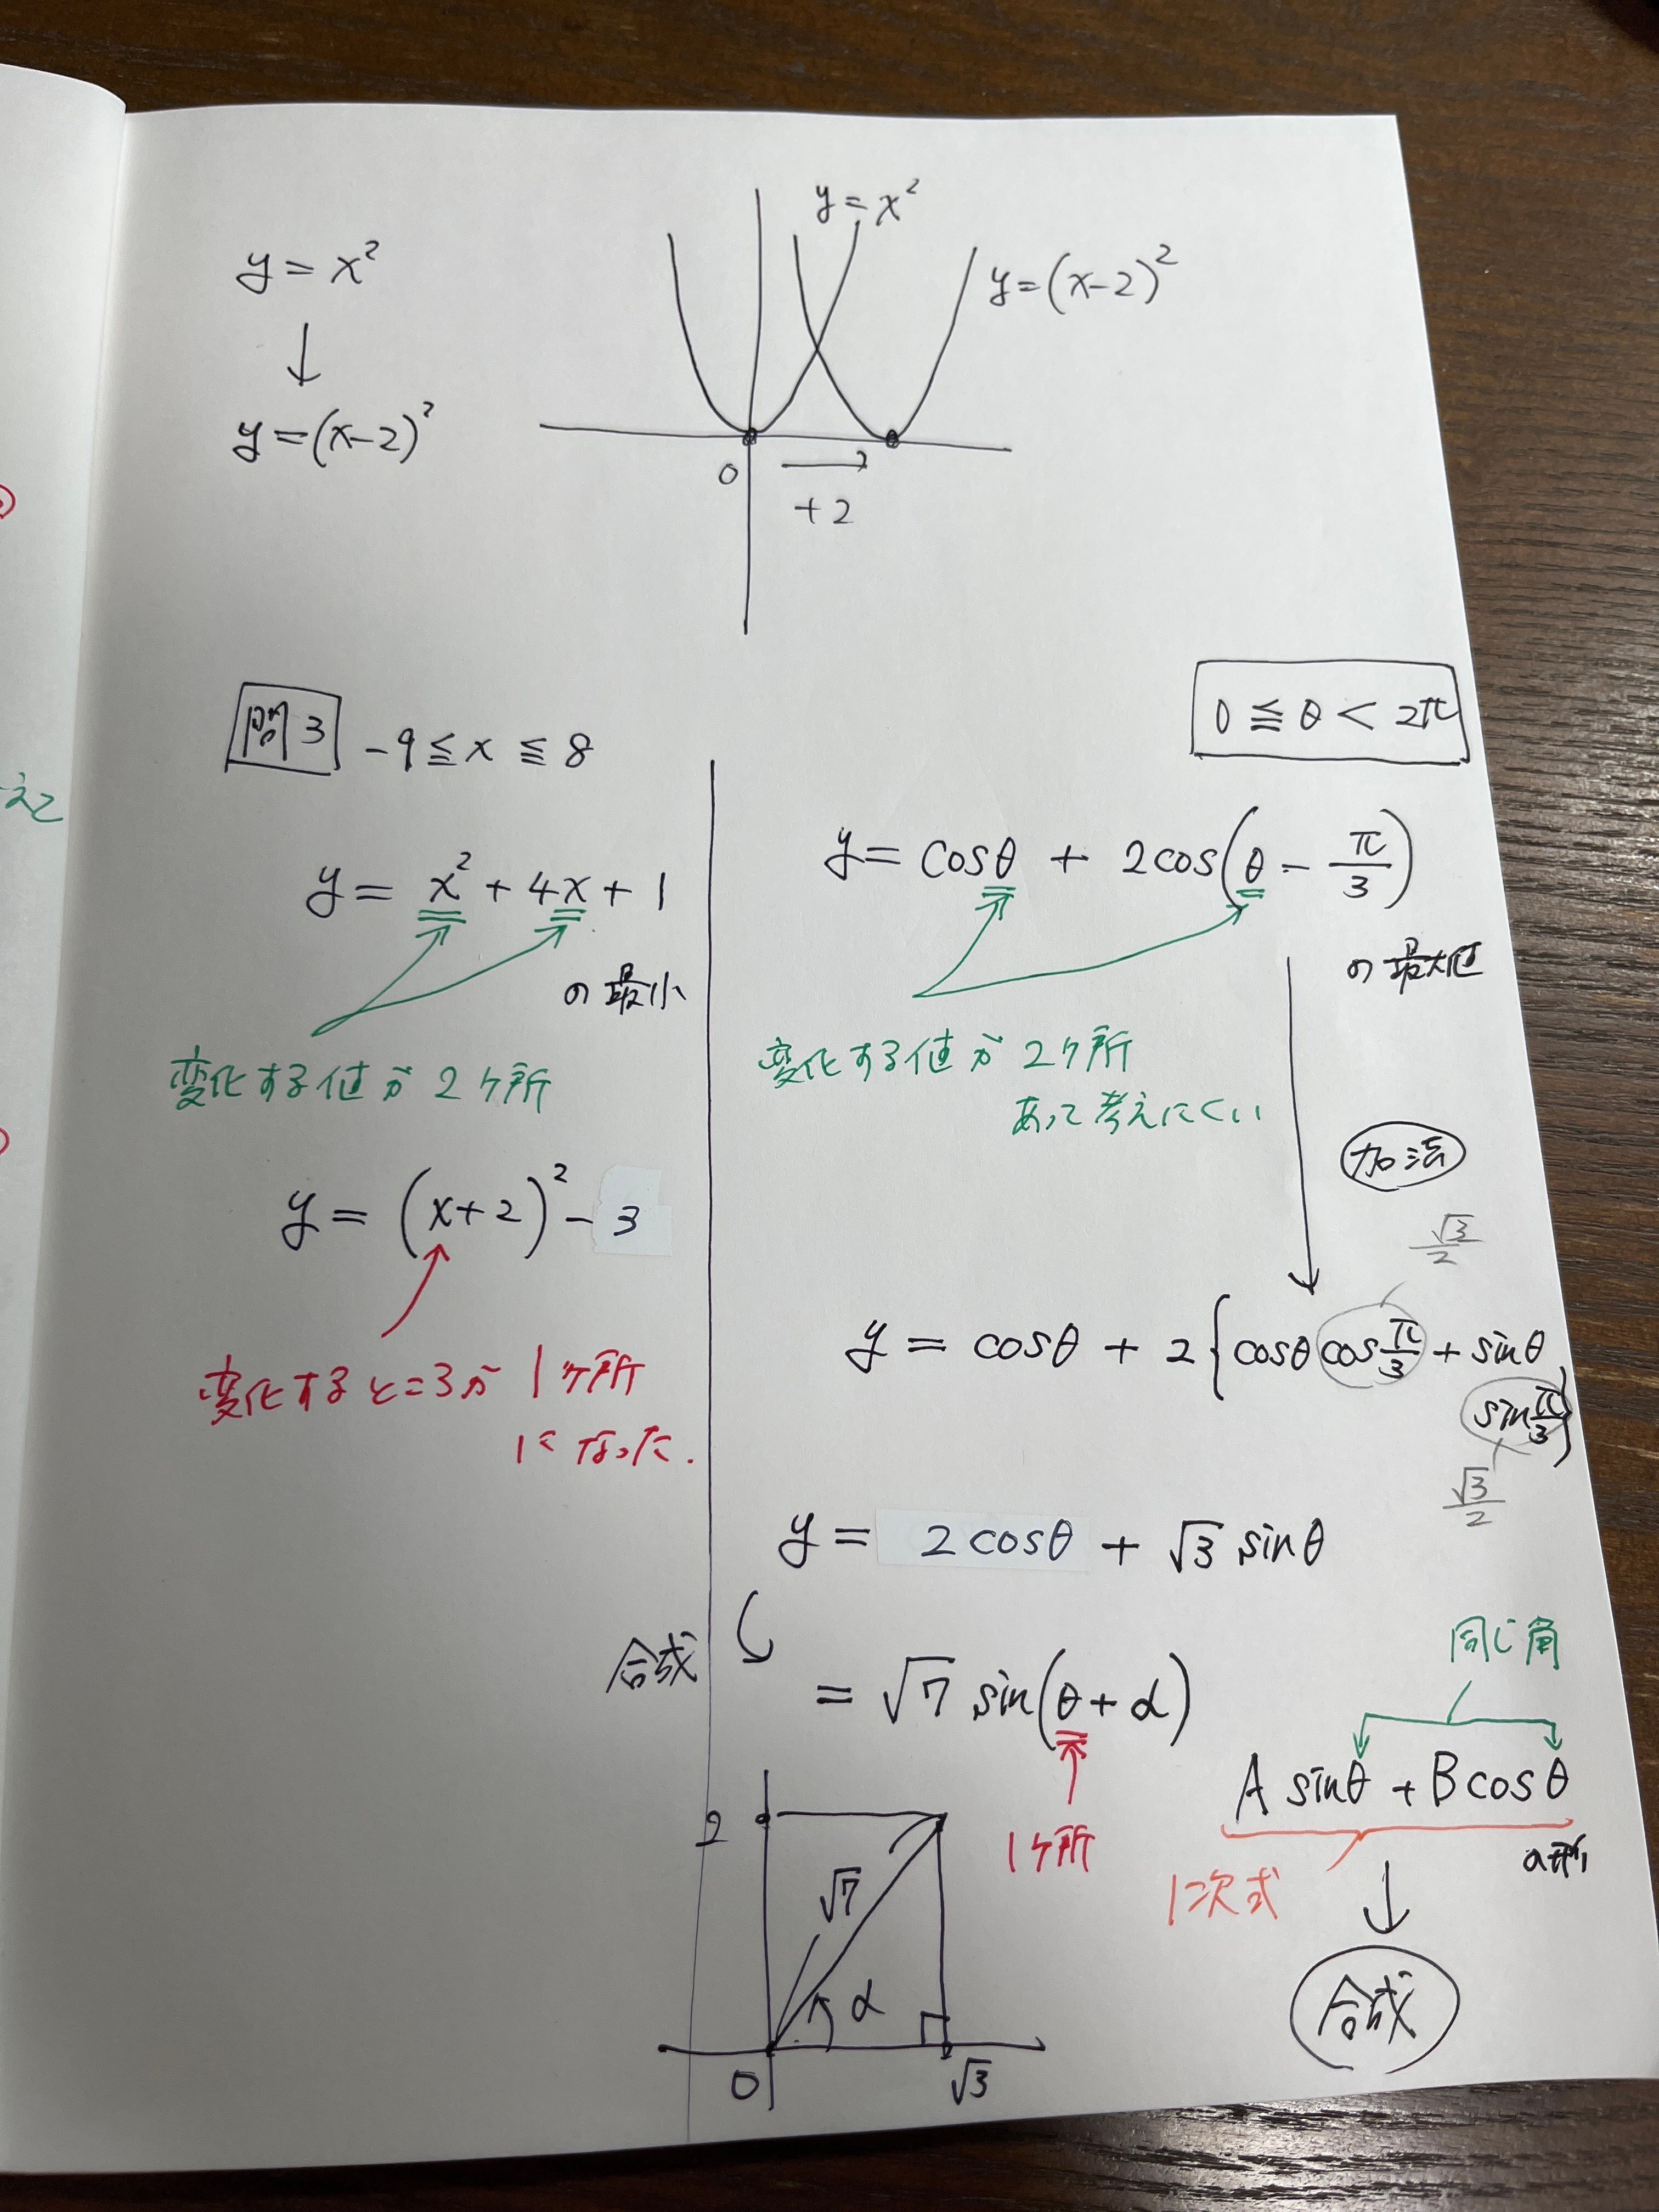 y = x²
y = (x-2)²
y = x²
y = (x-2)²
0
+2
問3 -9 ≦ x ≦ 8
y = x² + 4x + 1
の最小
変化する値が2ヶ所
y = (x+2)² - 3
変化するところが1ヶ所
になった.
0 ≦ θ < 2π
y = cosθ + 2cos(θ - π/3)
の最大値
変化する値が2ヶ所
あって考えにくい
加法
√3/2
y = cosθ + 2{cosθ cos π/3 + sinθ
sin π/3}
√3/2
y = 2cosθ + √3 sinθ
合成
= √7 sin(θ + α)
1ヶ所
同じ角
A sinθ + B cosθ
の形
1次式
合成
2
√7
α
0
√3